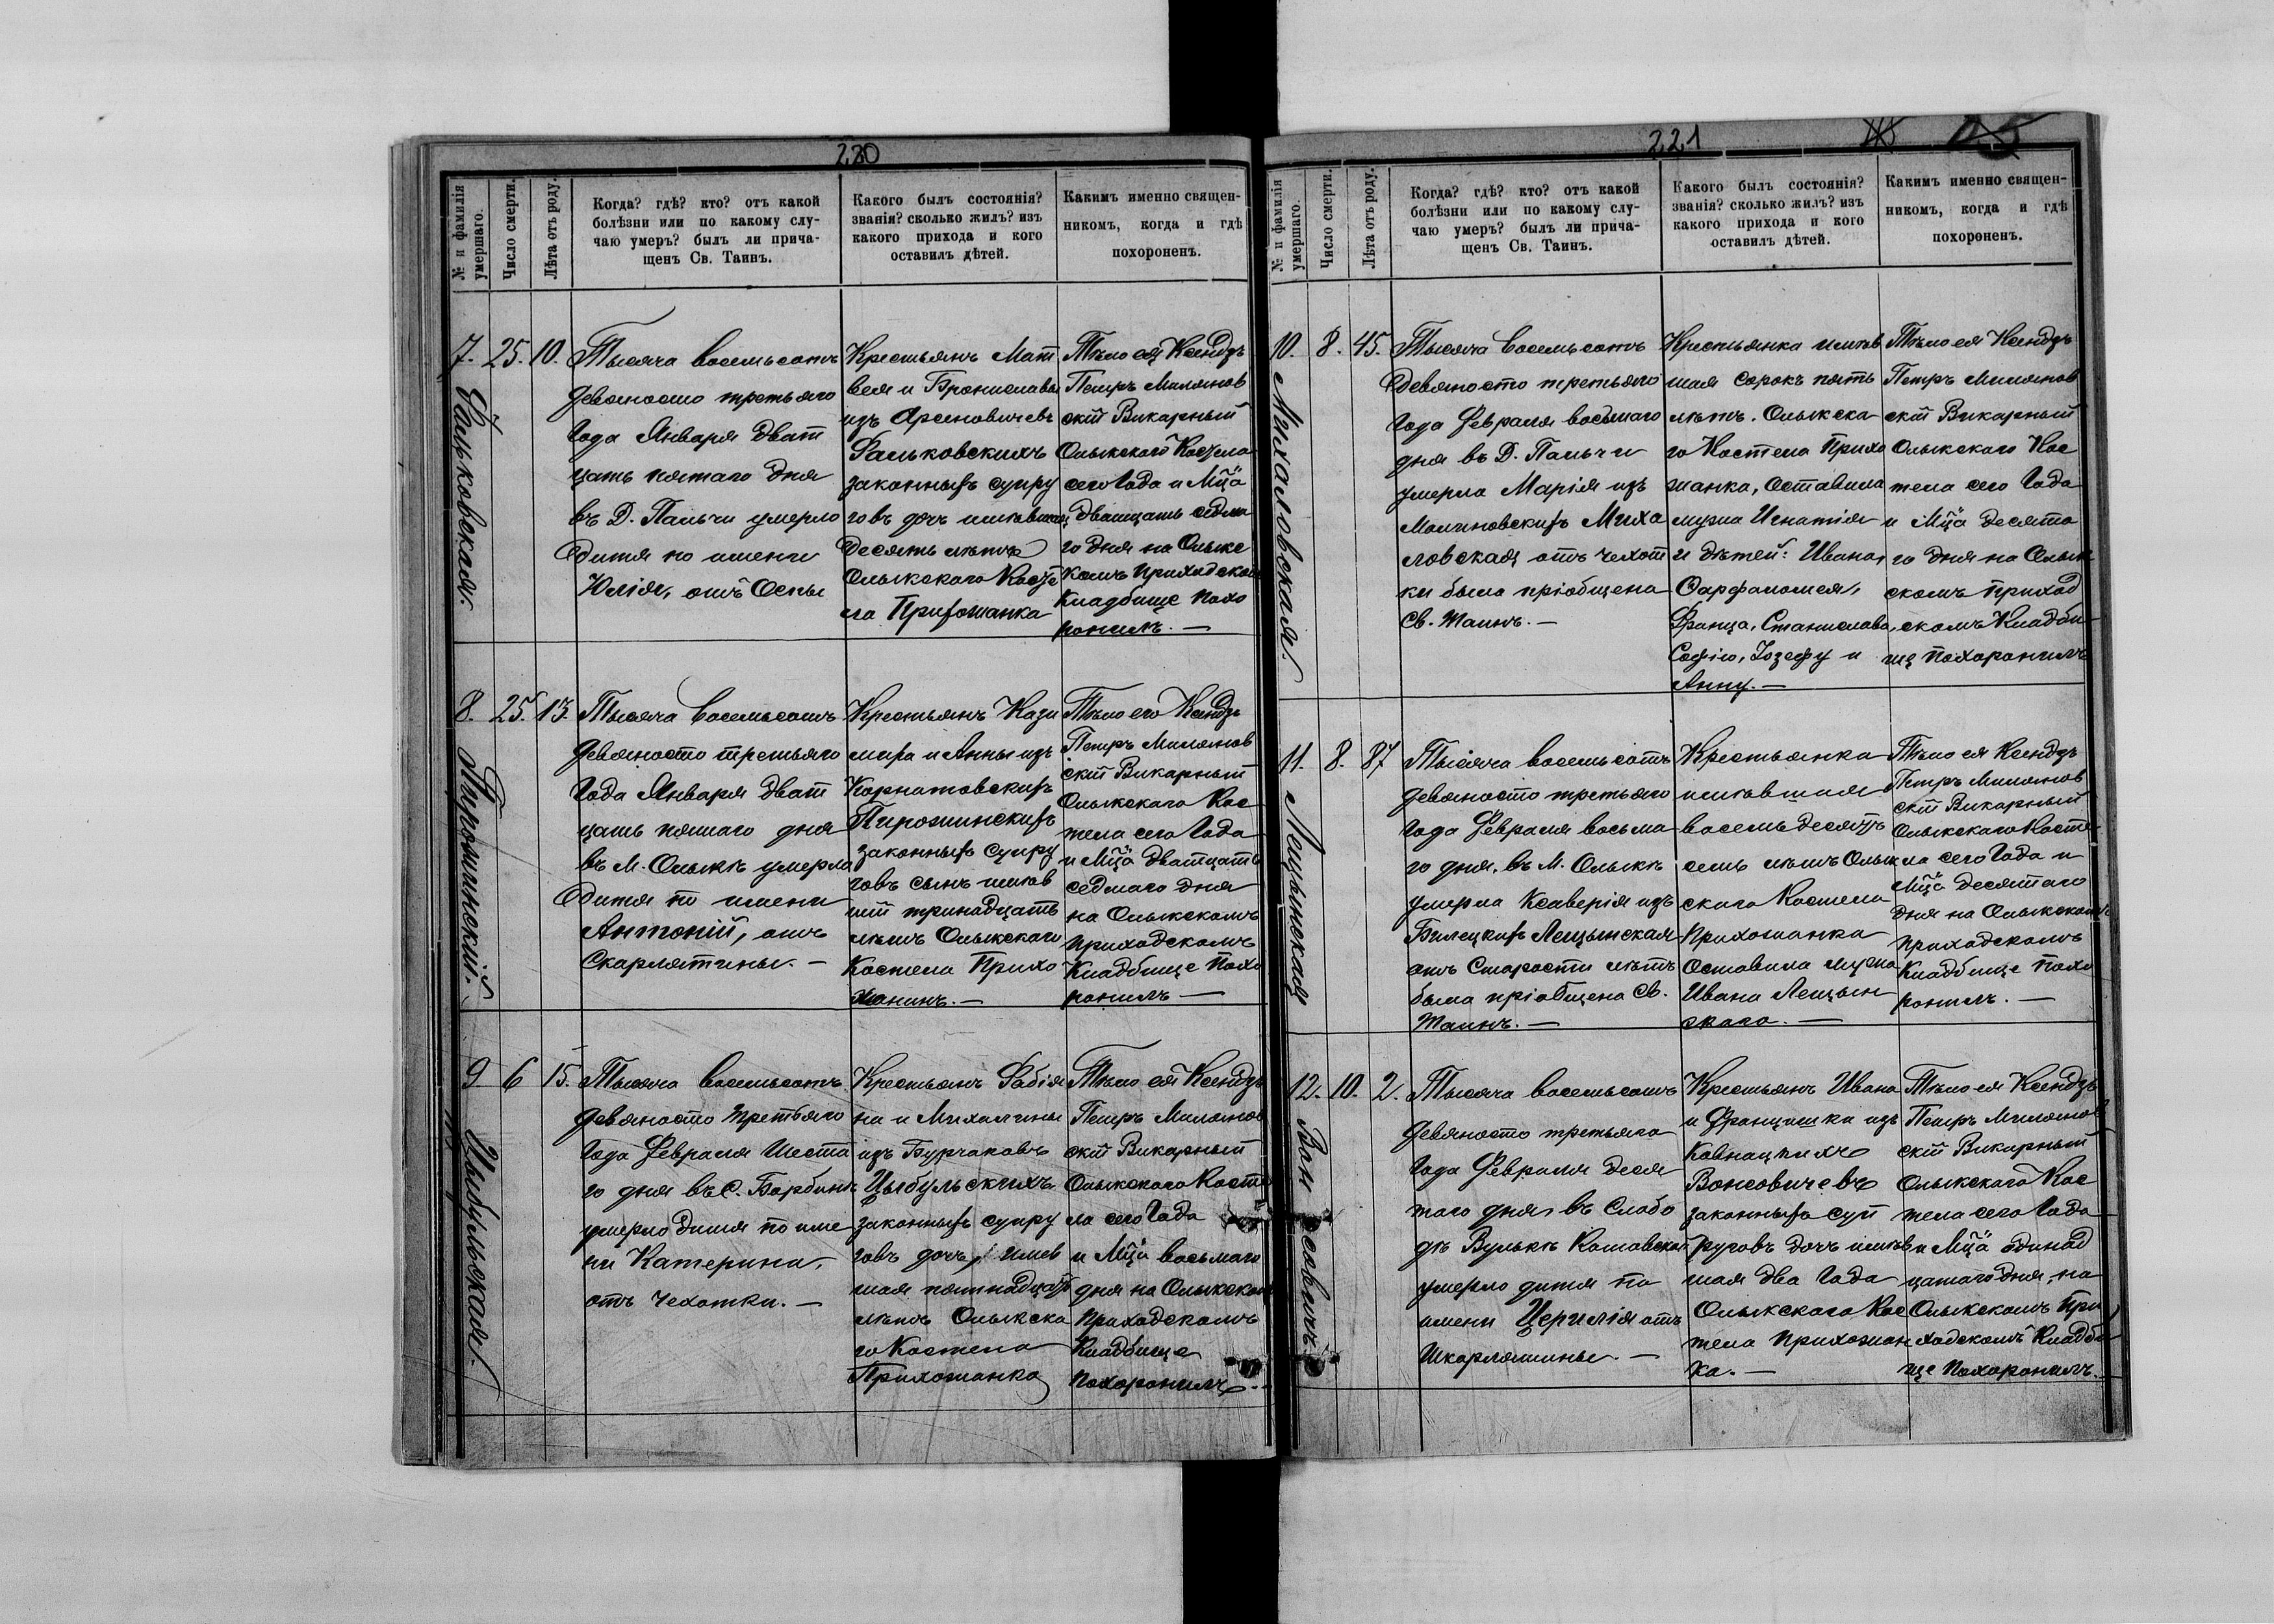 220
№ и фамилія умершаго.
Число смерти.
Лѣта отъ роду.
Когда? гдѣ? кто? отъ какой
болѣзни или по какому слу-
чаю умеръ? былъ ли прича-
щенъ Св. Таинъ.
Какого былъ состоянія?
званія? сколько жилъ? изъ
какого прихода и кого
оставилъ дѣтей.
Каким именно священ-
никомъ, когда и гдѣ
похороненъ.
7. 25. 10.
Фальковская.
Тысяча восемьсотъ
девяносто третьяго
Года Января дват
цать пятаго дня
въ Д. Пальчи умерло
дитя по имени
Юлія, отъ Оспы
Крестьянъ Мат
вея и Брониславы
изъ Арсеновичевъ
Фальковскихъ
законныхъ супру
говъ дочь имѣвшая
десять лѣтъ
Олыкского Косте
ла Прихожанка
Тѣло ея Ксендзъ
Петръ Миляновскій
Викарный
Олыкского Костела
сего Года и Мца
двацать седма
го дня на Олыкс
комъ Приходском
Кладбище похо
ронилъ. —
8. 25. 13.
Пирожинскій.
Тысяча восемьсотъ
девяносто третьяго
Года Января дват
цать пятаго дня
въ М. Олыкѣ умерло
дитя по имени
Антоній, отъ
Скарлятины. —
Крестьянъ Кази
мира и Анны изъ
Корнатовскихъ
Пирожинскихъ
законныхъ супру
говъ сынъ имѣв
шій тринадцать
лѣтъ Олыкского
Костела Прихо
жанинъ. —
Тѣло его Ксендзъ
Петръ Миляновскій
Викарный
Олыкскаго Кос
тела сего Года
и Мца дватцать
седмаго дня
на Олыкскомъ
приходскомъ
Кладбище похо
ронилъ —
9. 6 15.
Цыбульская.
Тысяча восемьсотъ
девяносто третьяго
Года Февраля Шеста
го дня въ С.
умерло дитя по име
ни Катерина,
отъ Чехотки. —
Крестьянъ Фабія
на и Михалины
изъ Бурчаковъ
Цыбульскихъ
законныхъ супру
говъ дочь, имѣв
шая пятнадцать
лѣтъ Олыкска
го Костела
Прихожанка
Тѣло ея Ксендзъ
Петръ Милянов
скій Викарный
Олыкского Косте
ла сего Года
и Мца восьмаго
дня на Олыкском
Приходскомъ
Кладбище
похоронилъ. —
221
№ и фамилія умершаго.
Число смерти.
Лѣта отъ роду.
Когда? гдѣ? кто? отъ какой
болѣзни или по какому слу-
чаю умеръ? былъ ли прича-
щенъ Св. Таинъ.
Какого былъ состоянія?
званія? сколько жилъ? изъ
какого прихода и кого
оставилъ дѣтей.
Какимъ именно священ-
никомъ, когда и гдѣ
похороненъ.
10. 8. 45.
Михаловская.
Тысяча восемьсотъ
девяносто третьяго
Года Февраля восьмаго
дня въ Д. Пальчи
умерла Марія изъ
Малиновскихъ Миха
ловская отъ чехот
ки была пріобщена
Св. Таинъ. —
Крестьянка имѣв
шая сорокъ пять
лѣтъ. Олыкска
го Костела Прихо
жанка, Оставила
мужа Игнатія
и дѣтей: Ивана,
Франца, Станислава,
Софію, Іозефу и
Анну. —
Тѣло ея Ксендзъ
Петръ Милянов
скій Викарный
Олыкскаго Кос
тела сего Года
и Мца десята
го дня на Олык
скомъ приход
скомъ Кладби
щѣ похоронилъ
11. 8. 87
Лещынская
Тысяча восемьсотъ
девяносто третьяго
Года Февраля восьма
го дня. въ М. Олыкѣ
умерла Ксаверія изъ
Билецкихъ Лещынская
отъ Старости лѣтъ
была пріобщена Св.
Таинъ. —
Крестьянка
имѣвшая
восемьдесятъ
семь лѣтъ Олык
скаго Костела
Прихожанка
Оставила мужа
Ивана Лещын
скаго. —
Тѣло ея Ксендзъ
Петръ Милянов
скій Викарный
Олыкскаго Косте
ла сего Года и
Мца десятаго
дня на Олыкскомъ
приходскомъ
Кладбище похо
ронилъ. —
12. 10. 2.
Тысяча восемьсотъ
девяносто третьяго
Года Февраля деся
таго дня въ Слобо
дѣ Вулькѣ Котовской
умерло дитя по
имени Цецилія отъ
Шкарлятины. —
Крестьянъ Ивана
и Францишки изъ
Вонсовичевъ
законныхъ суп
руговъ дочь имѣв
шая два Года
Олыкскаго Кос
тела прихожан
ка. —
Тѣло ея Ксендзъ
Петръ Милянов
скій Викарный
Олыкскаго Кос
тела сего Года
и Мца одинад
цатаго дня, на
Олыкскомъ При
ходскомъ Кладби
ще похоронилъ.